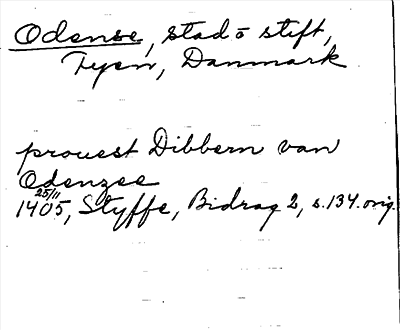 Odense, stad o stift,
Fyen, Danmark
prouest Dibbern van
Odenzee
25/11
1405, Styffe, Bidrag 2, s. 134. orig.